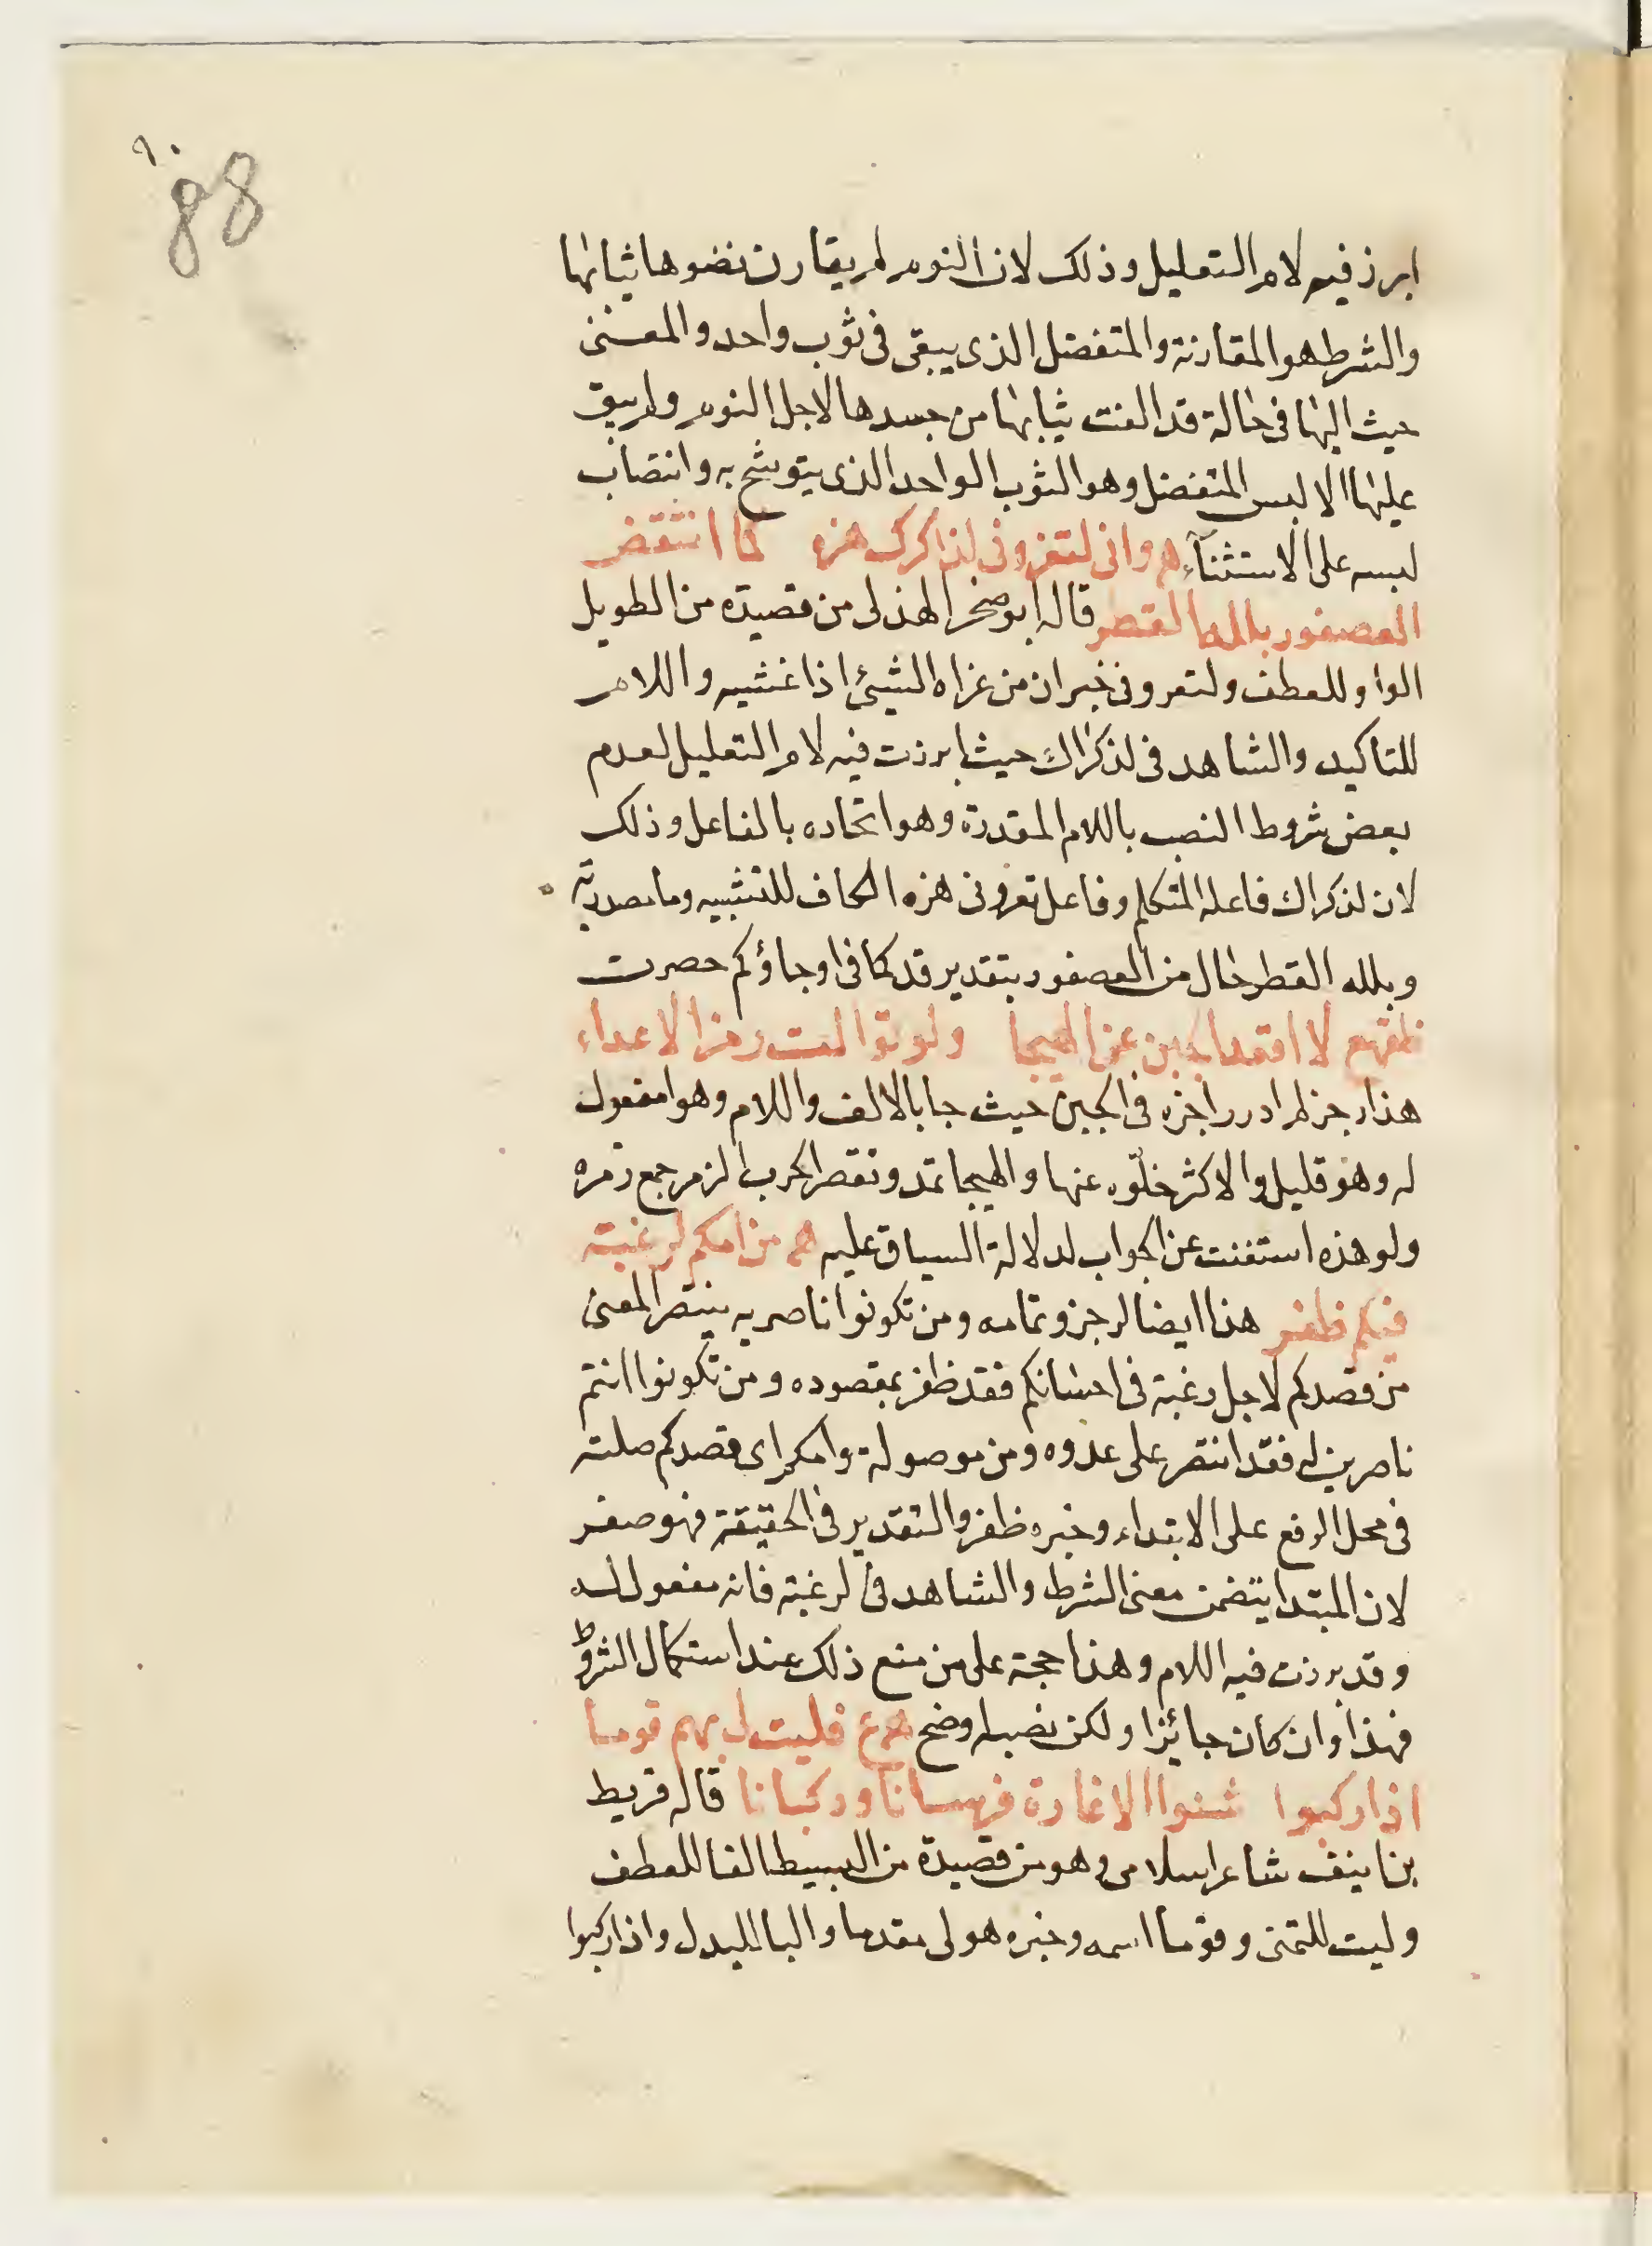 ٩٠
88
ابرز فيه لام التعليل وذلك لان النوم لم يقارن نضوها ثيابها
والشرط هو المقارنة والمتفضل الذى يبقى فى ثوب واحد والمعنى
حيث اليها فى حالة قد القت ثيابها من جسدها لاجل النوم ولم يبق
عليها الا لبس المتفضل وهو الثوب الواحد الذى يتوشح به وانتصاب
لبسه على الاستثناء وانى لتعرونى لذاكرك هزه كما انتقض
العصفور بلله القطر قاله ابو صخر الهذلى من قصيدة من الطويل
الواو للعطف ولتعرونى خبر ان من عراه الشيئ اذا غشيه واللام
للتاكيد والشاهد فى لذكراك حيث ابرزت فيه لام التعليل لعدم
بعض شروط النصب باللام المقدرة وهو اتحاده بالفاعل وذلك
لان لذكراك فاعله المتكلم وفاعل تعرونى هزه الكاف للتشبيه وما مصدرية
وبلله القطر حال من العصفور بتقدير قد كما فى او جاؤكم حصرت
ظقهع لا اقعد الجبن عن الهيجا ولو توالت زمر الاعداء
هذا رجز لم ادر راجزه فى الجبن حيث جا بالالف واللام وهو امفعول
له وهو قليل والاكثر خلوه عنها والهيجا تمد وتقصر الحرب الزمر جمع زمره
ولو هذه استغنت عن الجواب لدلالة السياق عليه من امكم لرغبة
فيكم ظفر هذا ايضا لرجز وتمامه ومن تكونوا ناصريه ينتصر المعنى
من قصدكم لاجل رغبة فى احسانكم فقد ظفر بمقصوده ومن تكونوا انتم
ناصرين له فقد انتصر على عدوه ومن موصولة وامكم اى قصدكم صلته
فى محل الرفع على الابتداء وخبره ظفر والتقدير فى الحقيقة فهو صفر
لان المبتدا يتضمن معنى الشرط والشاهد فى لرغبة فانه مفعول له
وقد برزت فيه اللام وهذا حجة على من منع ذلك عند استكمال الشروط
فهذا وان كان جائزا ولكن نصبه اوضح فليت لى بهم قوما
اذا ركبوا شنوا الاغارة فرسانا وركبانا قاله قريط
بن انيف شاعر اسلامى وهو من قصيدة من البسيط الفا للعطف
وليت للتمنى وقوما اسمه وخبره هو لى مقدما والبا للبدل واذا ركبوا